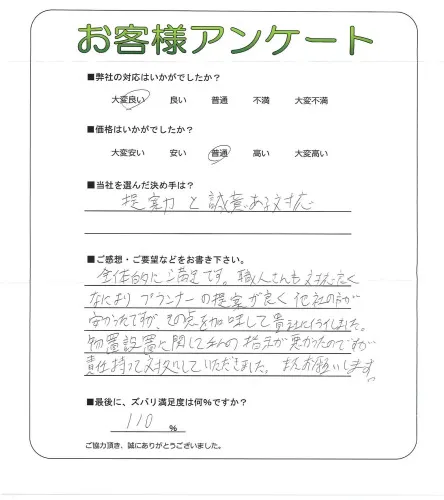 お客様アンケート
■弊社の対応はいかがでしたか?
大変良い 良い 普通 不満 大変不満
■価格はいかがでしたか?
大変安い 安い 普通 高い 大変高い
■当社を選んだ決め手は?
提案力と誠意ある対応
■ご感想・ご要望などをお書き下さい。
全体的に満足です。職人さんも対応良く
なにより プランナーの提案が良く 他社の方が
安かったですが、その点を加味して貴社にイライしました。
物置設置に関して の指示が悪かったのですが
責任持って対処していただきました。またお願いします
■最後に、ズバリ満足度は何%ですか?
110 %
ご協力頂き、誠にありがとうございました。